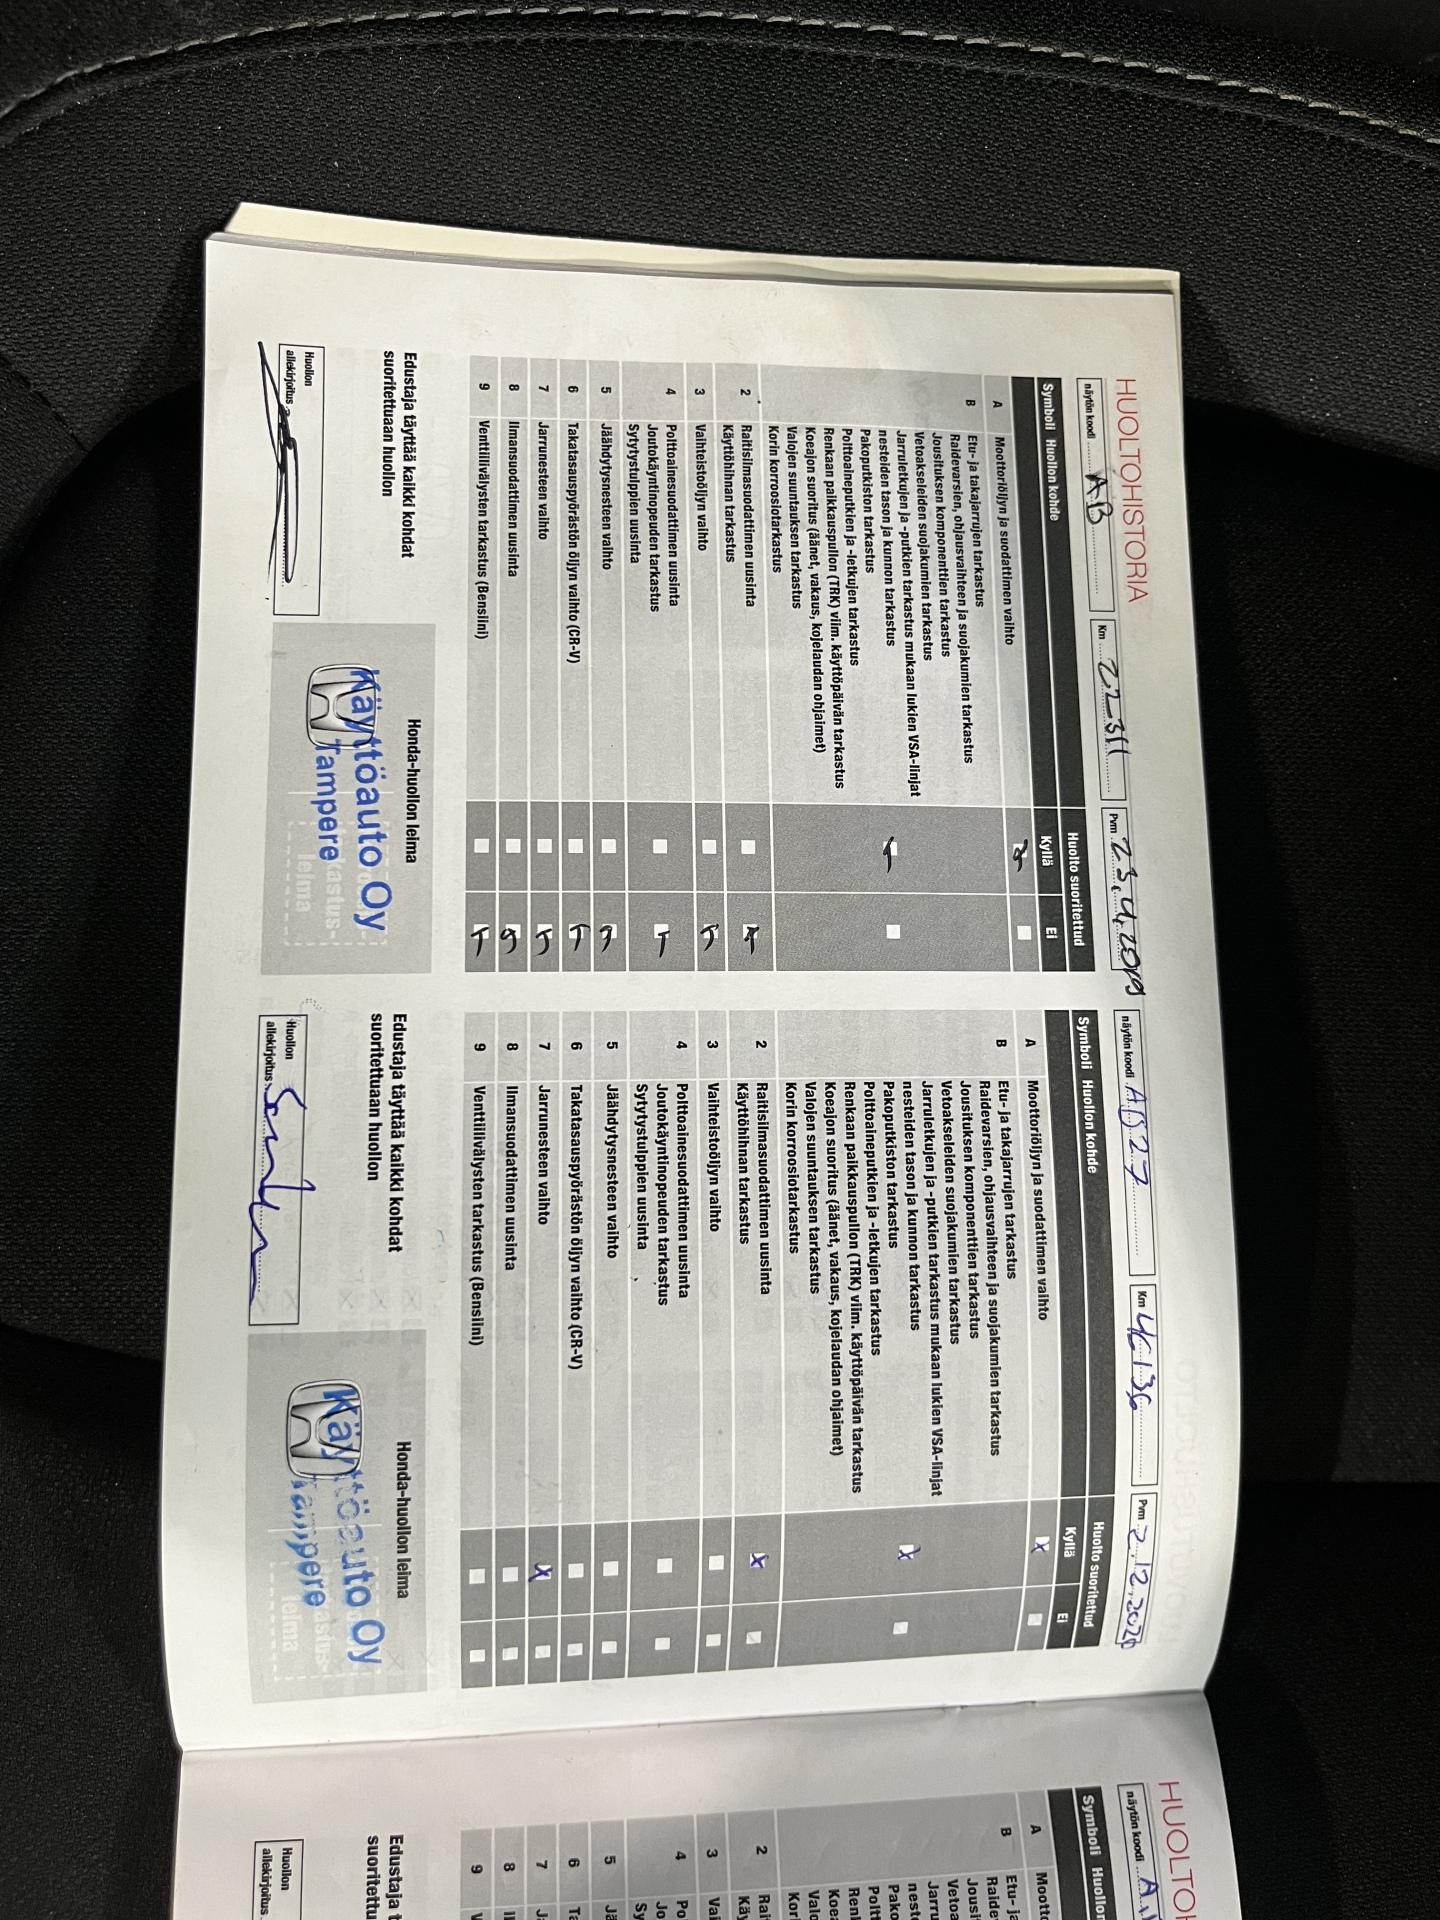 HUOLTOHISTORIA
näytön koodi AB
Km 22311
Pvm 23.4.2019
Symboli Huollon kohde
Huolto suoritettud
Kyllä Ei
A Moottoriöljyn ja suodattimen vaihto
B Etu- ja takajarrujen tarkastus
Raidevarsien, ohjausvaihteen ja suojakumien tarkastus
Jousituksen komponenttien tarkastus
Vetoakseleiden suojakumien tarkastus
Jarruletkujen ja -putkien tarkastus mukaan lukien VSA-linjat
nesteiden tason ja kunnon tarkastus
Pakoputkiston tarkastus
Polttoaineputkien ja -letkujen tarkastus
Renkaan paikkauspullon (TRK) viim. käyttöpäivän tarkastus
Koeajon suoritus (äänet, vakaus, kojelaudan ohjaimet)
Valojen suuntauksen tarkastus
Korin korroosiotarkastus
2 Raitisilmasuodattimen uusinta
Käyttöhihnan tarkastus
3 Vaihteistoöljyn vaihto
4 Polttoainesuodattimen uusinta
Joutokäyntinopeuden tarkastus
Sytytystulppien uusinta
5 Jäähdytysnesteen vaihto
6 Takatasauspyörästön öljyn vaihto (CR-V)
7 Jarrunesteen vaihto
8 Ilmansuodattimen uusinta
9 Venttiilivälysten tarkastus (Bensiini)
Edustaja täyttää kaikki kohdat
suoritettuaan huollon
Huollon
allekirjoitus
Honda-huollon leima
Käyttöauto Oy
Tampere
leima
näytön koodi AB27
Km 46136
Pvm 2.12.2020
Symboli Huollon kohde
Huolto suoritettud
Kyllä Ei
A Moottoriöljyn ja suodattimen vaihto
B Etu- ja takajarrujen tarkastus
Raidevarsien, ohjausvaihteen ja suojakumien tarkastus
Jousituksen komponenttien tarkastus
Vetoakseleiden suojakumien tarkastus
Jarruletkujen ja -putkien tarkastus mukaan lukien VSA-linjat
nesteiden tason ja kunnon tarkastus
Pakoputkiston tarkastus
Polttoaineputkien ja -letkujen tarkastus
Renkaan paikkauspullon (TRK) viim. käyttöpäivän tarkastus
Koeajon suoritus (äänet, vakaus, kojelaudan ohjaimet)
Valojen suuntauksen tarkastus
Korin korroosiotarkastus
2 Raitisilmasuodattimen uusinta
Käyttöhihnan tarkastus
3 Vaihteistoöljyn vaihto
4 Polttoainesuodattimen uusinta
Joutokäyntinopeuden tarkastus
Sytytystulppien uusinta
5 Jäähdytysnesteen vaihto
6 Takatasauspyörästön öljyn vaihto (CR-V)
7 Jarrunesteen vaihto
8 Ilmansuodattimen uusinta
9 Venttiilivälysten tarkastus (Bensiini)
Edustaja täyttää kaikki kohdat
suoritettuaan huollon
Huollon
allekirjoitus
Honda-huollon leima
Käyttöauto Oy
Tampere
leima
HUOLTO
näytön koodi A
Symboli Huollon
A Mootto
B Etu- ja
Raide
Jousi
Vetoa
Jarru
nest
Pako
Poltt
Ren
Koea
Valo
Kori
2 Rai
Kä
3 Vai
4 Po
Jo
Sy
5 Jä
6 Ta
7 J
8 Il
9 V
Edustaja t
suoritettu
Huollon
allekirjoitus